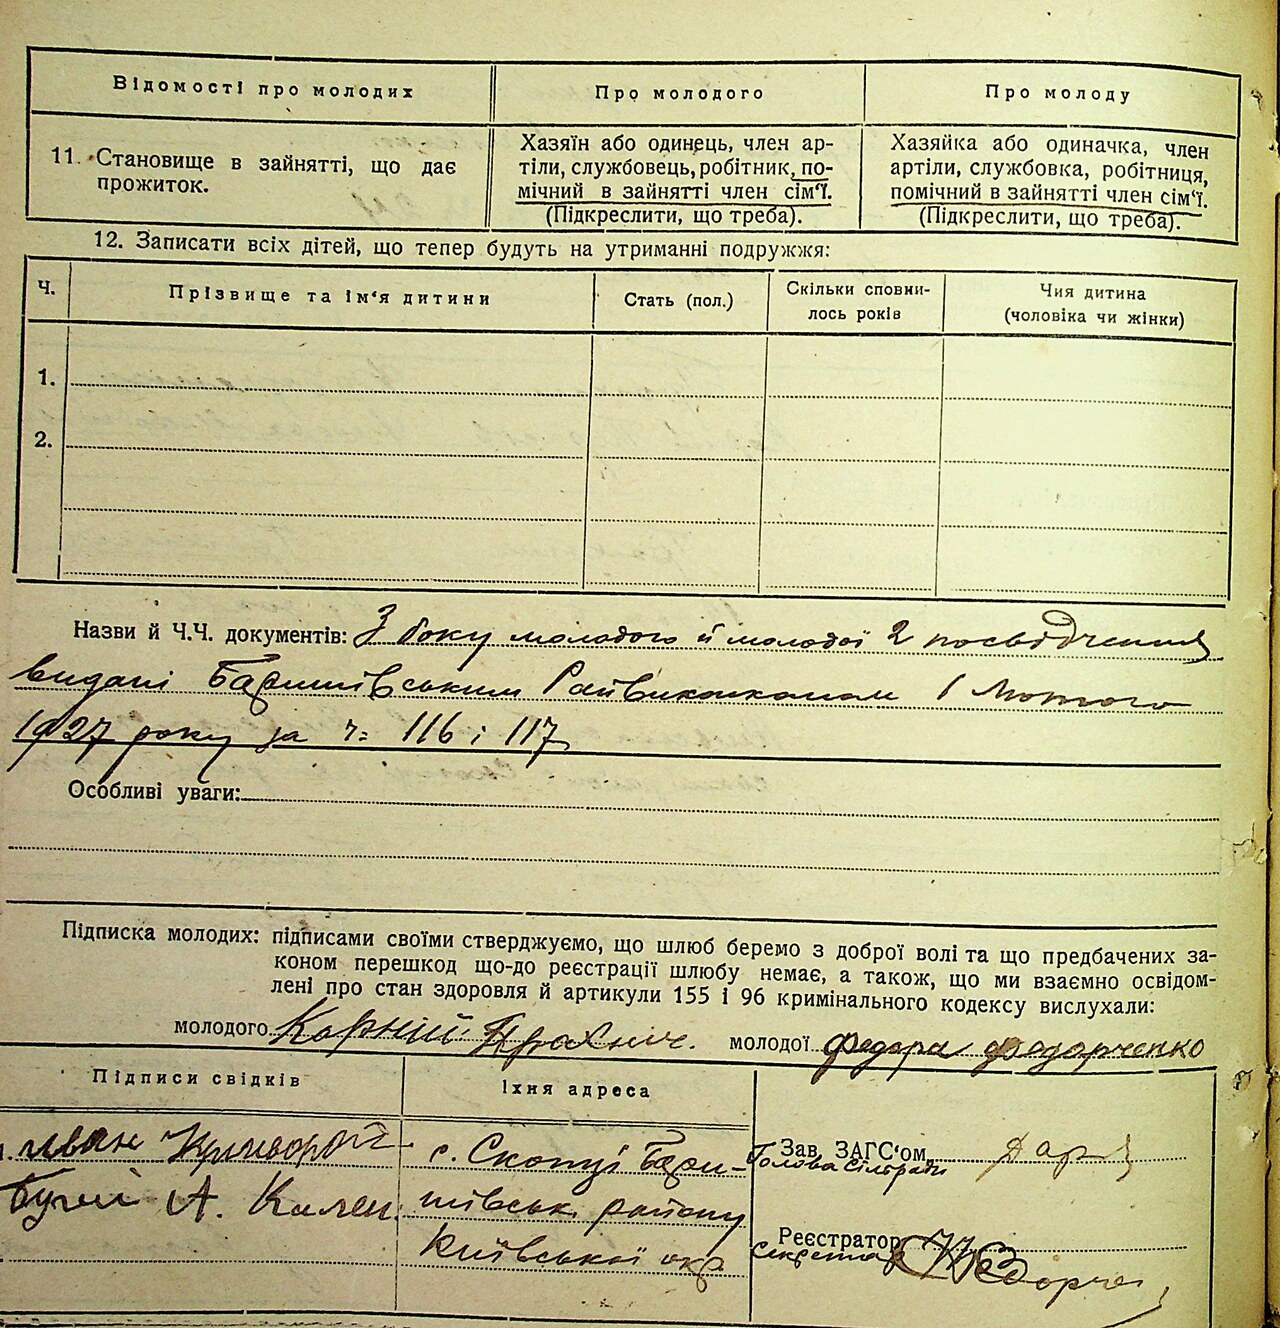 Відомості про молодих
Про молодого
Про молоду
11. Становище в зайнятті, що дає
прожиток.
Хазяїн або одинець, член ар-
тіли, службовець, робітник, по-
мічний в зайнятті член сім'ї.
(Підкреслити, що треба).
Хазяйка або одиначка, член
артіли, службовка, робітниця,
помічний в зайнятті член сім'ї.
(Підкреслити, що треба).
12. Записати всіх дітей, що тепер будуть на утриманні подружжя:
Ч.
Прізвище та ім'я дитини
Стать (пол.)
Скільки сповни-
лось років
Чия дитина
(чоловіка чи жінки)
1.
2.
Назви й Ч.Ч. документів: З боку молодого й молодої 2 посвідчення
видані Баришівським Райвиконкомом 1 Лютого
1927 року за ч: 116 і 117
Особливі уваги:
Підписка молодих: підписами своїми стверджуємо, що шлюб беремо з доброї волі та що предбачених за-
коном перешкод що-до реєстрації шлюбу немає, а також, що ми взаємно освідом-
лені про стан здоровля й артикули 155 і 96 кримінального кодексу вислухали:
молодого Корній
молодої Федора Федорченко
Підписи свідків
Їхня адреса
Іван
А.
с. Скопці Бари-
шівськ району
Київської окр
Зав. ЗАГС'ом
Голова Сільради
Реєстратор
Секретар